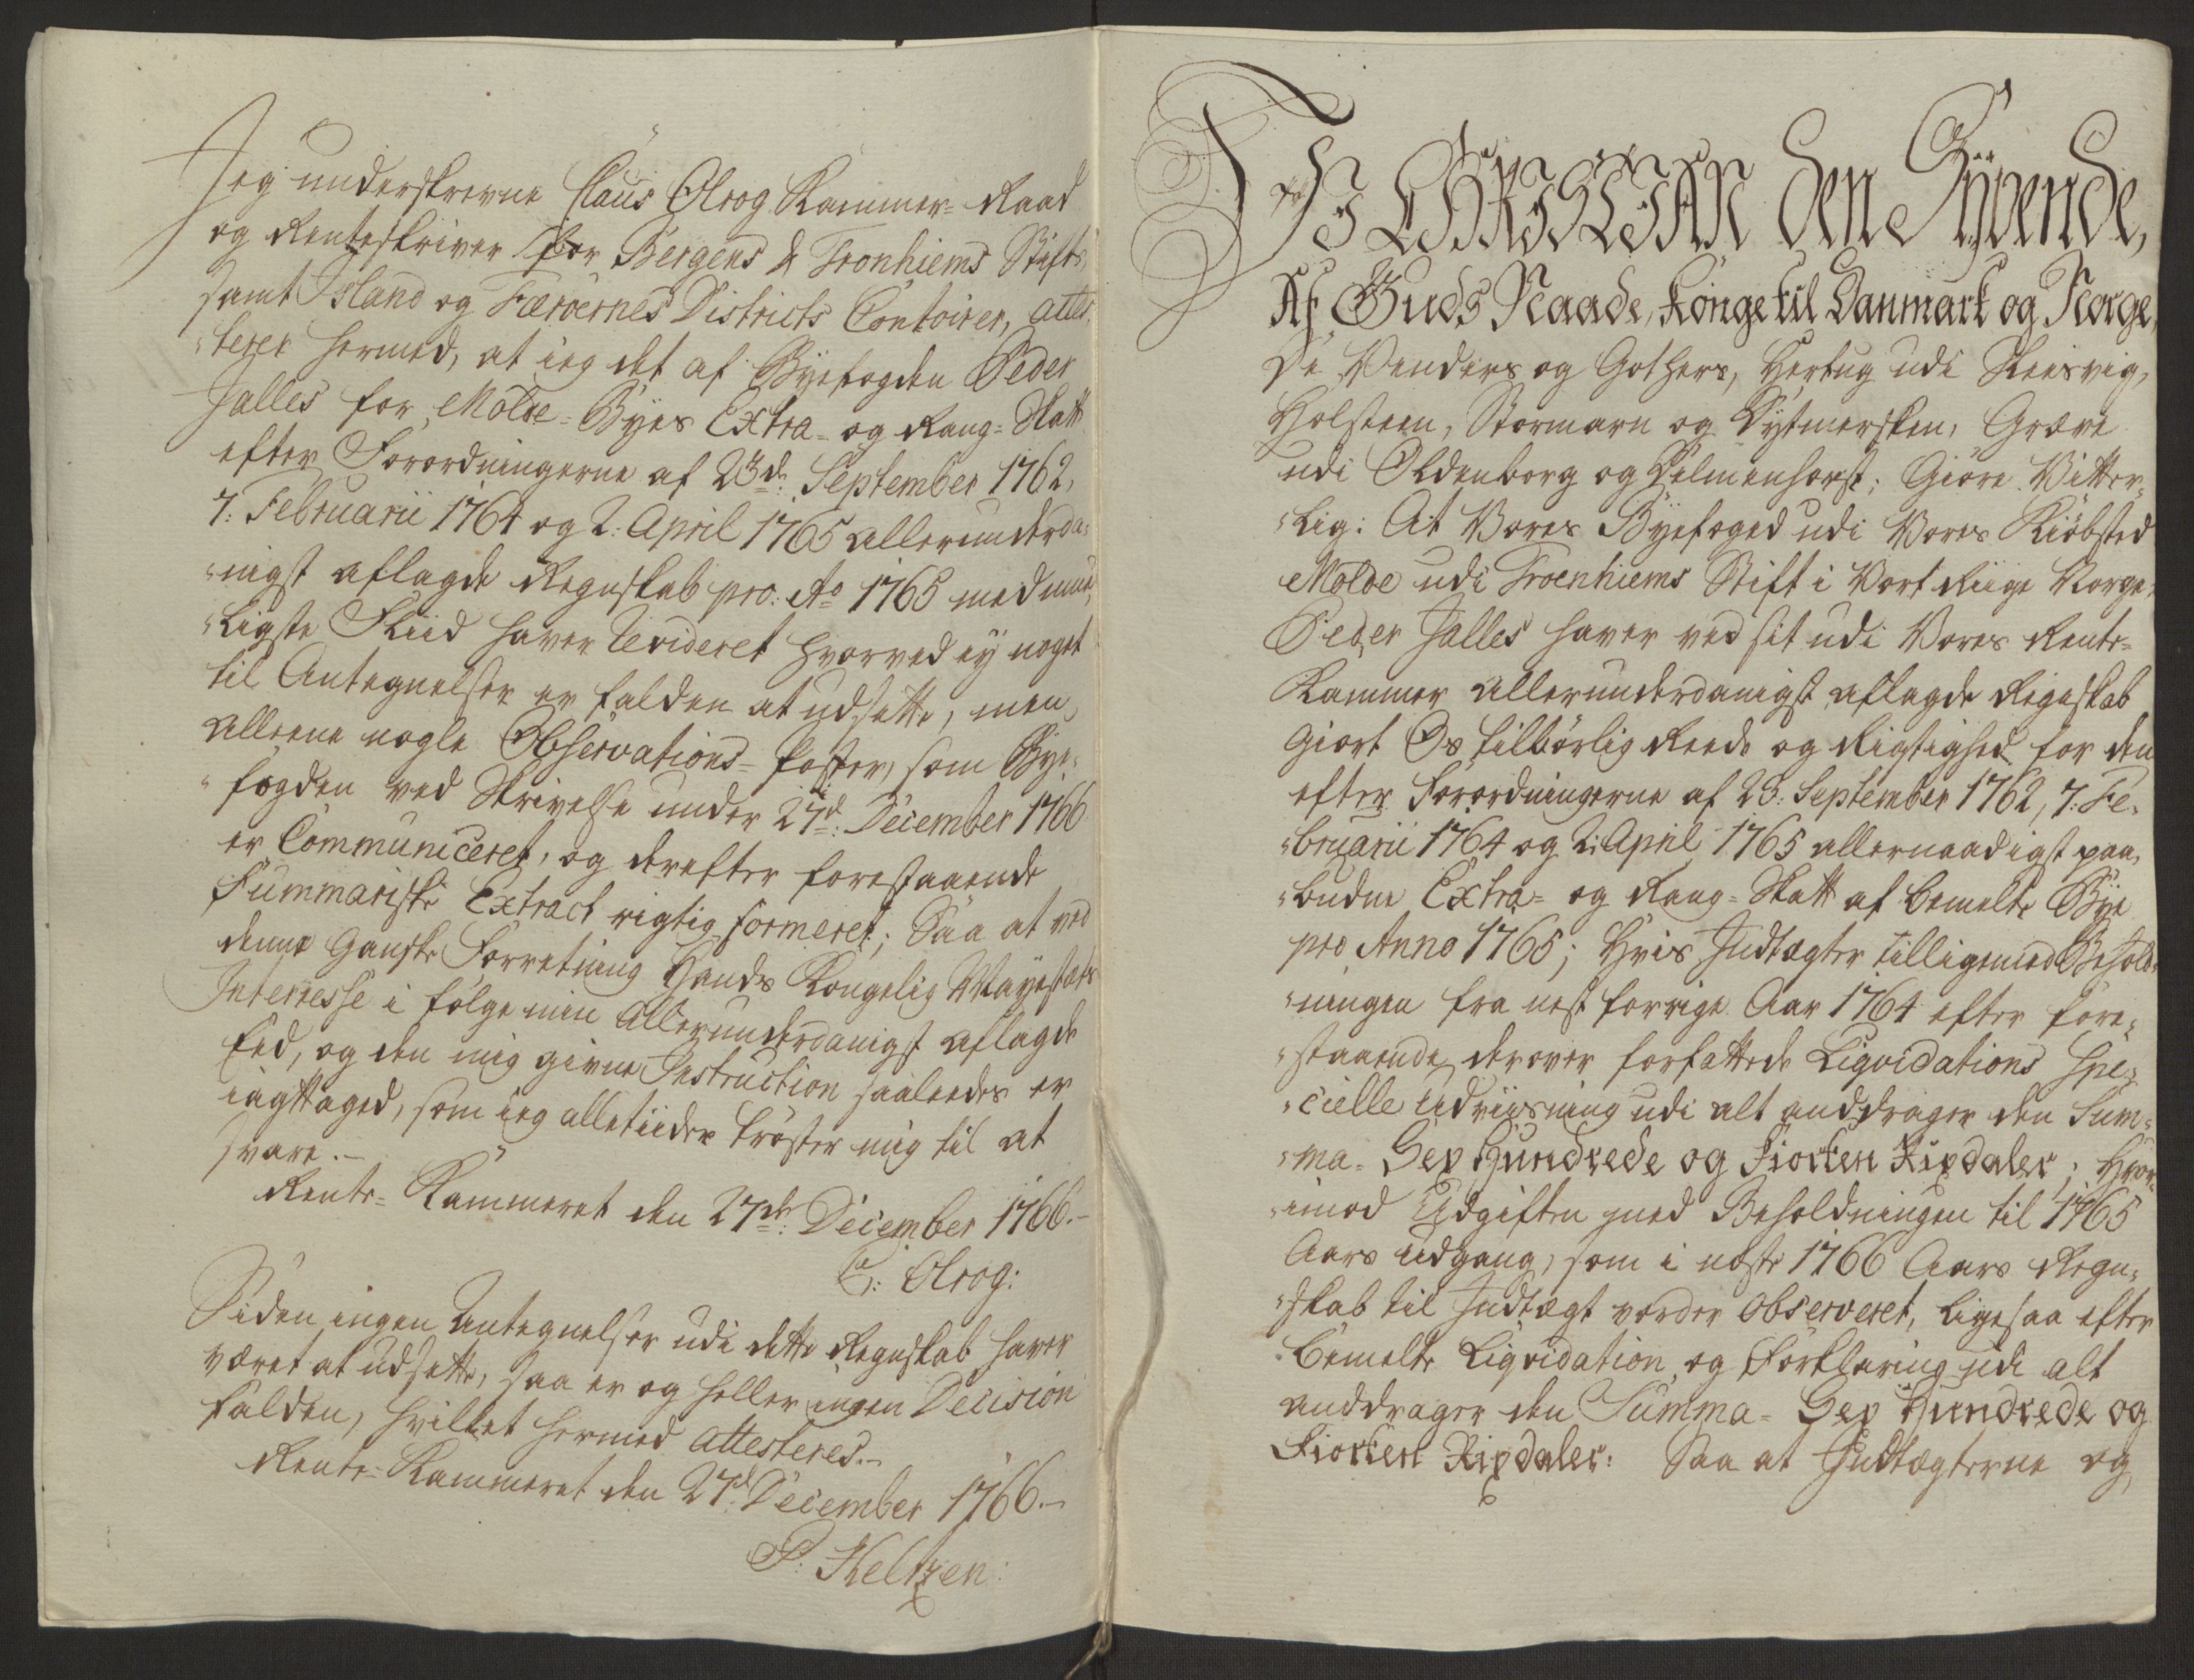 Jeg underskrevne Claus Olrog Kammer-Raad
og Renteskriver for Bergens & Tronhiems Stifts,
samt Island og Færöernes Districts Contoirer, attes-
"terer hermed, at ieg det af Byefogden Peder
Jalles for Molde-Byes Extra- og Rang-Skatt
efter Forordningerne af 23de September 1762,
7: Februarii 1764 og 2: April 1765 allerunderda-
"nigst aflagde Regnskab pro: Ao 1765 med mue-
"ligste Fliid haver Revideret hvorved ey noget
til Antegnelser er falden at udsette, men
alleene nogle Observations-Poster, som Bye-
"fogden ved Skrivelse under 27d: December 1766
er Communiceret, og derefter forestaaende
Summariske Extract rigtig formeret; Saa at ved
denne gandske Forretning Hands Kongelig Mayestæts
Interesse i følge min Allerunderdanigst aflagde
Eed, og den mig givne Instruction saaleedes er
iagttaged, som ieg alletiider trøster mig til at
svare.-
Rente-Kammeret den 27de December 1766.-
C: Olrog:
Siden ingen Antegnelser udi dette Regnskab haver
været at udsette, saa er og heller ingen Decision
falden, hvilket hermed attesteres.-
Rente-Kammeret den 27d: December 1766.-
P: Heltzen:
VJ CHRISTIAN den Syvende,
Af Guds Naade, Konge til Danmark og Norge,
De Venders og Gothers, Hertug udi Slesvig,
Holsteen, Stormarn og Dytmersken, Greve
udi Oldenborg og Delmenhorst; Giöre Vitter-
"lig: At Vores Byefoged udi Vores Kiöbsted
Molde udi Troenhiems Stift i Vort Riige Norge,
Peder Jalles haver ved sit udi Vores Rente-
Kammer allerunderdanigst aflagde Regnskab
giort Os tilbörlig Reede og Rigtighed for den
efter Forordningerne af 23: September 1762, 7: Fe-
"bruarii 1764 og 2: April 1765 allernaadigst paa-
"budne Extra- og Rang-Skatt af bemelte Bye
pro Anno 1765; Hvis Indtægter tilligemed Behold-
"ningen fra nest forrige Aar 1764 efter fore-
"staaende derover forfattede Liqvidations Spe-
"cielle Udviisning udi alt anddrager den Sum-
"ma- Sex Hundrede og Fiorten Rixdaler; Hvor-
"imod Udgiften med Beholdningen til 1765
Aars Udgang, som i neste 1766 Aars Regn-
"skab til Indtægt vorder observeret, ligesaa efter
bemelte Liqvidation og Forklaring udi alt
anddrager den Summa- Sex Hundrede og
Fiorten Rixdaler: Saa at Indtægterne og